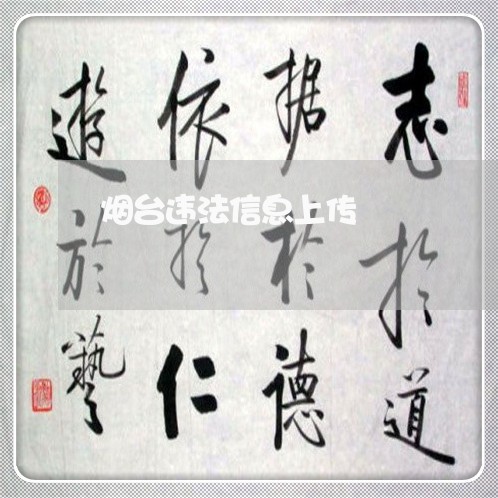 志於道
据於德
依於仁
遊於藝
烟台违法信息上传